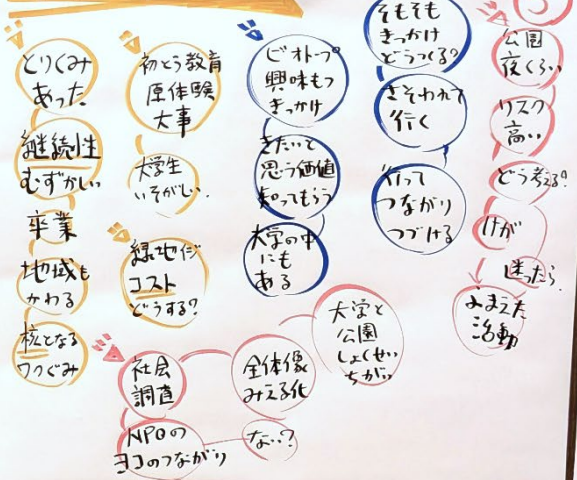 とりくみ
あった
継続性
むずかしい
卒業
地域も
かわる
核となる
初とう教育
原体験
大事
大学生
いそがしい.
緑地イジ
コスト
どうする?
ビオトープ
興味もつ
きっかけ
きたいと
思う価値
知ってもらう
大学の中
にも
ある
そもそも
きっかけ
どうつくる?
さそわれて
行く
行って
つながり
つづける
公園
夜くらい
リスク
高い
どう考える?
けが
困ったら
ふまえた
活動
社会
調査
NPOの
ヨコのつながり
全体像
みえる化
ない?
大学と
公園
しょくせい
ちがい